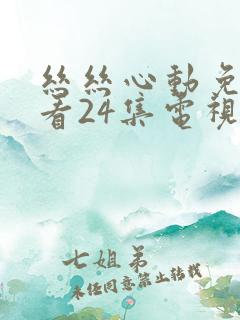 絲絲心動免
看24集電視
七姐弟
未任同意禁止转载